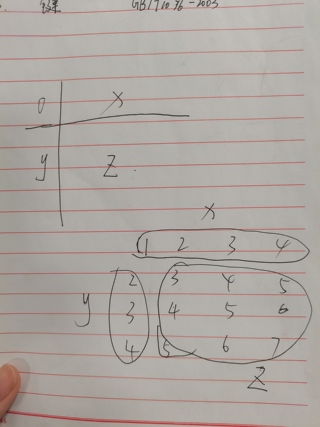 键 GB/T1096-2003
0 X
y Z
X
1 2 3 4
2 3 4 5
y 3 4 5 6
4 5 6 7
Z